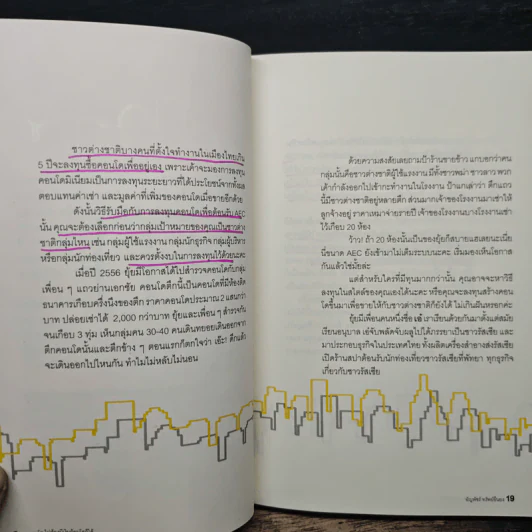 ชาวต่างชาติบางคนที่ตั้งใจทำงานในเมืองไทยเกิน
5 ปีจะลงทุนซื้อคอนโดเพื่ออยู่เอง เพราะเค้าจะมองการลงทุน
คอนโดมิเนียมเป็นการลงทุนระยะยาวที่ได้ประโยชน์จากทั้งผล
ตอบแทนค่าเช่า และมูลค่าที่เพิ่มของคอนโดเมื่อขายอีกด้วย
ดังนั้นวิธีรับมือกับการลงทุนคอนโดเพื่อต้อนรับ AEC
นั้น คุณจะต้องเลือกก่อนว่ากลุ่มเป้าหมายของคุณเป็นชาวต่าง
ชาติกลุ่มไหน เช่น กลุ่มผู้ใช้แรงงาน กลุ่มนักธุรกิจ กลุ่มผู้บริหาร
หรือกลุ่มนักท่องเที่ยว และควรตั้งงบในการลงทุนไว้ด้วยนะคะ
เมื่อปี 2556 ยุ้ยมีโอกาสได้ไปสำรวจคอนโดกับกลุ่ม
เพื่อน ๆ แถวย่านเอกชัย คอนโดตึกนี้เป็นคอนโดที่มีห้องติด
ธนาคารเกือบครึ่งนึงของตึก ราคาคอนโดประมาณ 2 แสนกว่า
บาท ปล่อยเช่าได้ 2,000 กว่าบาท ยุ้ยและเพื่อนๆ สำรวจกัน
จนเกือบ 3 ทุ่ม เห็นกลุ่มคน 30-40 คนเดินทยอยเดินออกจาก
ตึกคอนโดนั้นและตึกข้าง ๆ ตอนแรกก็ตกใจว่า เอ๊ะ! ดึกแล้ว
จะเดินออกไปไหนกัน ทำไมไม่หลับไม่นอน
ด้วยความสงสัยเลยถามป้าร้านขายข้าว แกบอกว่าคน
กลุ่มนั้นคือชาวต่างชาติผู้ใช้แรงงาน มีทั้งชาวพม่า ชาวลาว พวก
เค้ากำลังออกไปเข้ากะทำงานในโรงงาน ป้าแกเล่าว่า ตึกแถว
นี้มีชาวต่างชาติอยู่หลายตึก ส่วนมากเจ้าของโรงงานมาเช่าให้
ลูกจ้างอยู่ ราคาเหมาจ่ายรายปี เจ้าของโรงงานบางโรงงานเช่า
ไว้เกือบ 20 ห้อง
ว้าว! ถ้า 20 ห้องนั้นเป็นของยุ้ยก็สบายแฮเลยนะเนี่ย
นี่ขนาด AEC ยังเข้ามาไม่เต็มระบบนะคะ เริ่มมองเห็นโอกาส
กันแล้วใช่มั้ยล่ะ
แต่สำหรับใครที่มีทุนมากกว่านั้น คุณอาจจะหาวิธี
ลงทุนในสไตล์ของคุณเองได้นะคะ หรือคุณจะลงทุนสร้างคอน
โดขึ้นมาเพื่อขายให้กับชาวต่างชาติก็ยังได้ ไม่เกินฝันหรอกค่ะ
ยุ้ยมีเพื่อนคนหนึ่งชื่อ เจ๋ เราเรียนด้วยกันมาตั้งแต่สมัย
เรียนอนุบาล เจ๋จับพลัดจับผลูไปได้ภรรยาเป็นชาวรัสเซีย และ
มาประกอบธุรกิจในประเทศไทย ทั้งผลิตเครื่องสำอางส่งรัสเซีย
เปิดร้านสปาต้อนรับนักท่องเที่ยวชาวรัสเซียที่พัทยา ทุกธุรกิจ
เกี่ยวกับชาวรัสเซีย
19